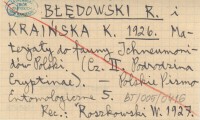 BŁĘDOWSKI R. i
KRAIŃSKA K. 1926. Ma-
terjały do fauny Ichneumoni-
dów Polski. (Cz. II, Podrodzina
Cryptinae). – Polskie Pismo
Entomologiczne 5.
Rec.: Roszkowski W. 1927.